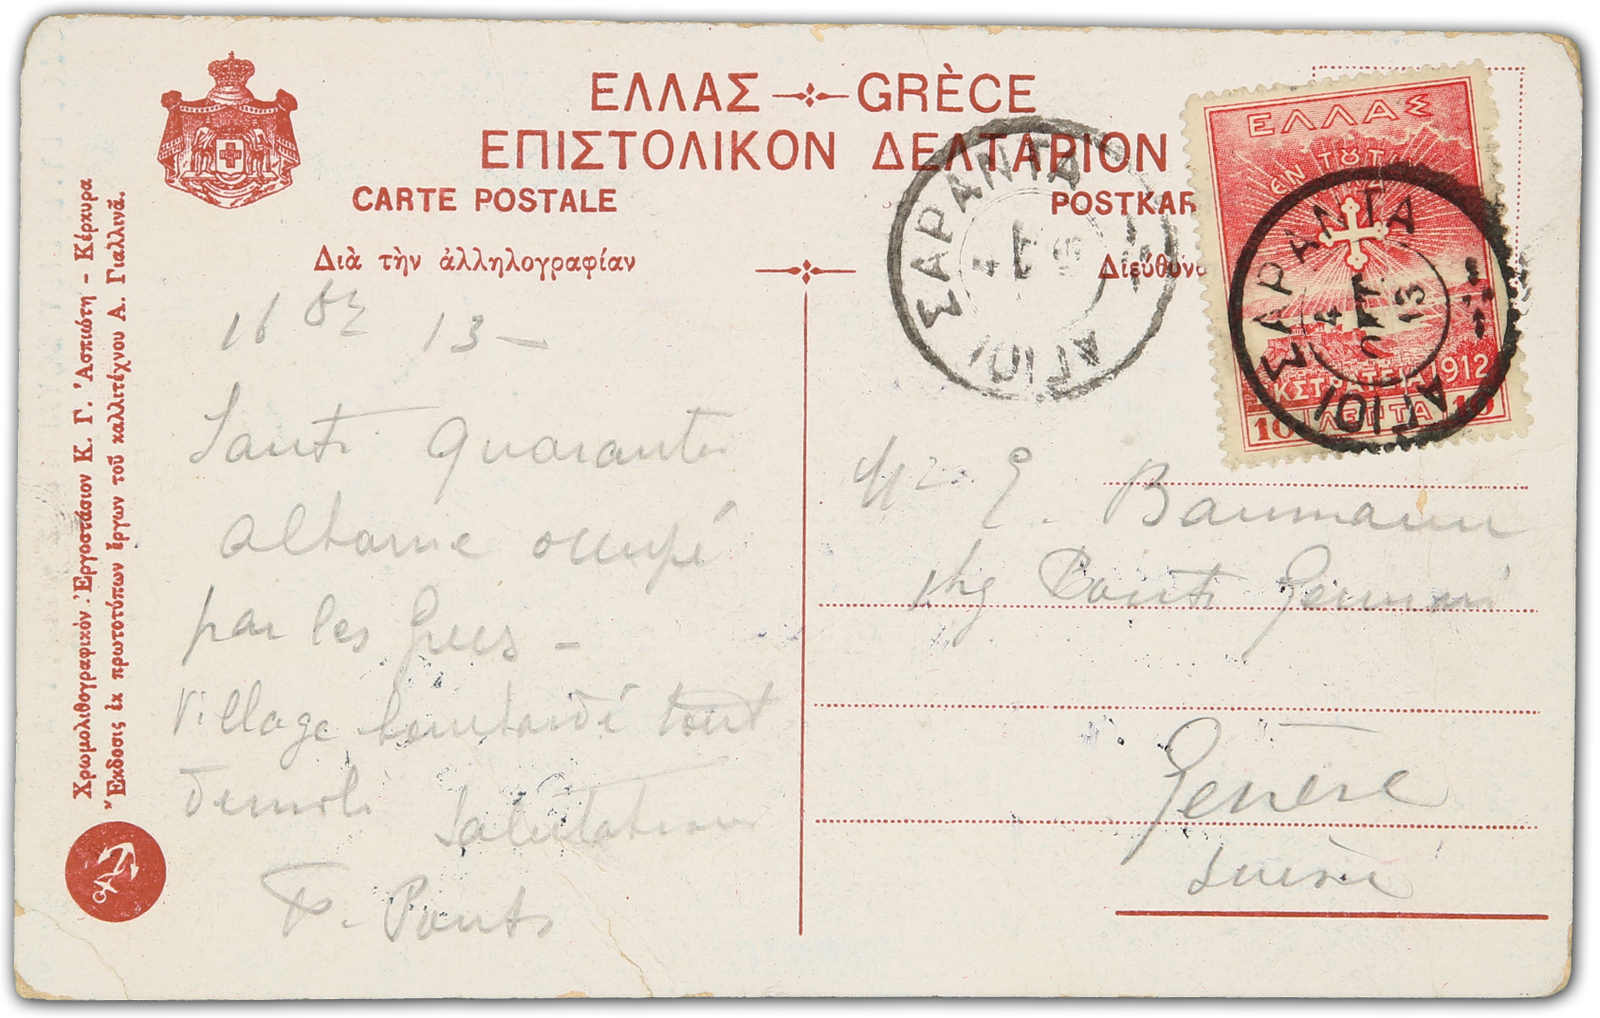 ΕΛΛΑΣ GRÈCE
ΕΠΙΣΤΟΛΙΚΟΝ ΔΕΛΤΑΡΙΟΝ
CARTE POSTALE
POSTKAR
Διὰ τὴν ἀλληλογραφίαν
Διεύθυνσ
Χρωμολιθογραφικὸν Ἐργοστάσιον Κ. Γ. Ἀσπιώτη - Κέρκυρα
Ἔκδοσις ἐκ πρωτοτύπων ἔργων τοῦ καλλιτέχνου Α. Γιαλλινᾶ.
16 13 –
Santi Quaranta
Albanie occupé
par les Grecs –
Village bombardé tout
demoli Salutations
F. Ponti
ΑΓΙΟΙ ΣΑΡΑΝΤΑ
4
ΕΛΛΑΣ
ΕΝ ΤΟΥΤ
ΕΚΣΤΡΑΤΕΙΑ 1912
10 ΛΕΠΤΑ 10
ΑΓΙΟΙ ΣΑΡΑΝΤΑ
4
ΟΚΤ.
13
E. Baumann
chz Ponti Gennari
Genève
Suisse